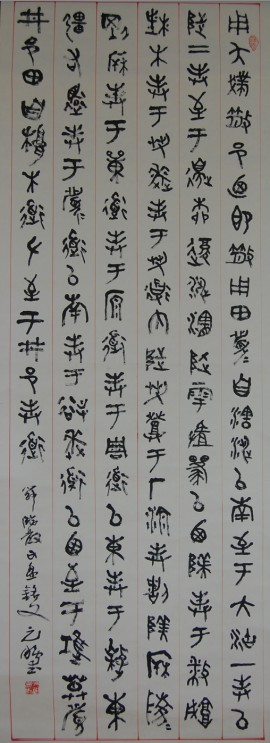 用夨散邑迺即散用田眉自瀗涉以南至于大沽一封以
陟二封至于邊柳復涉瀗陟雩以西封于播城
楮木封于芻逨封于芻道内陟芻登于厂湶封陵
剛封于道封于原道封于周道以東封于東
疆右還封于眉道以南封于逨道以西至于莫眉
井邑田自根木道左至于井邑封道
節臨散氏盤銘文